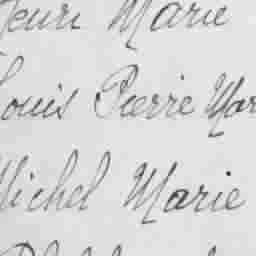 Henri Marie
Louis Pierre Mar
Michel Marie